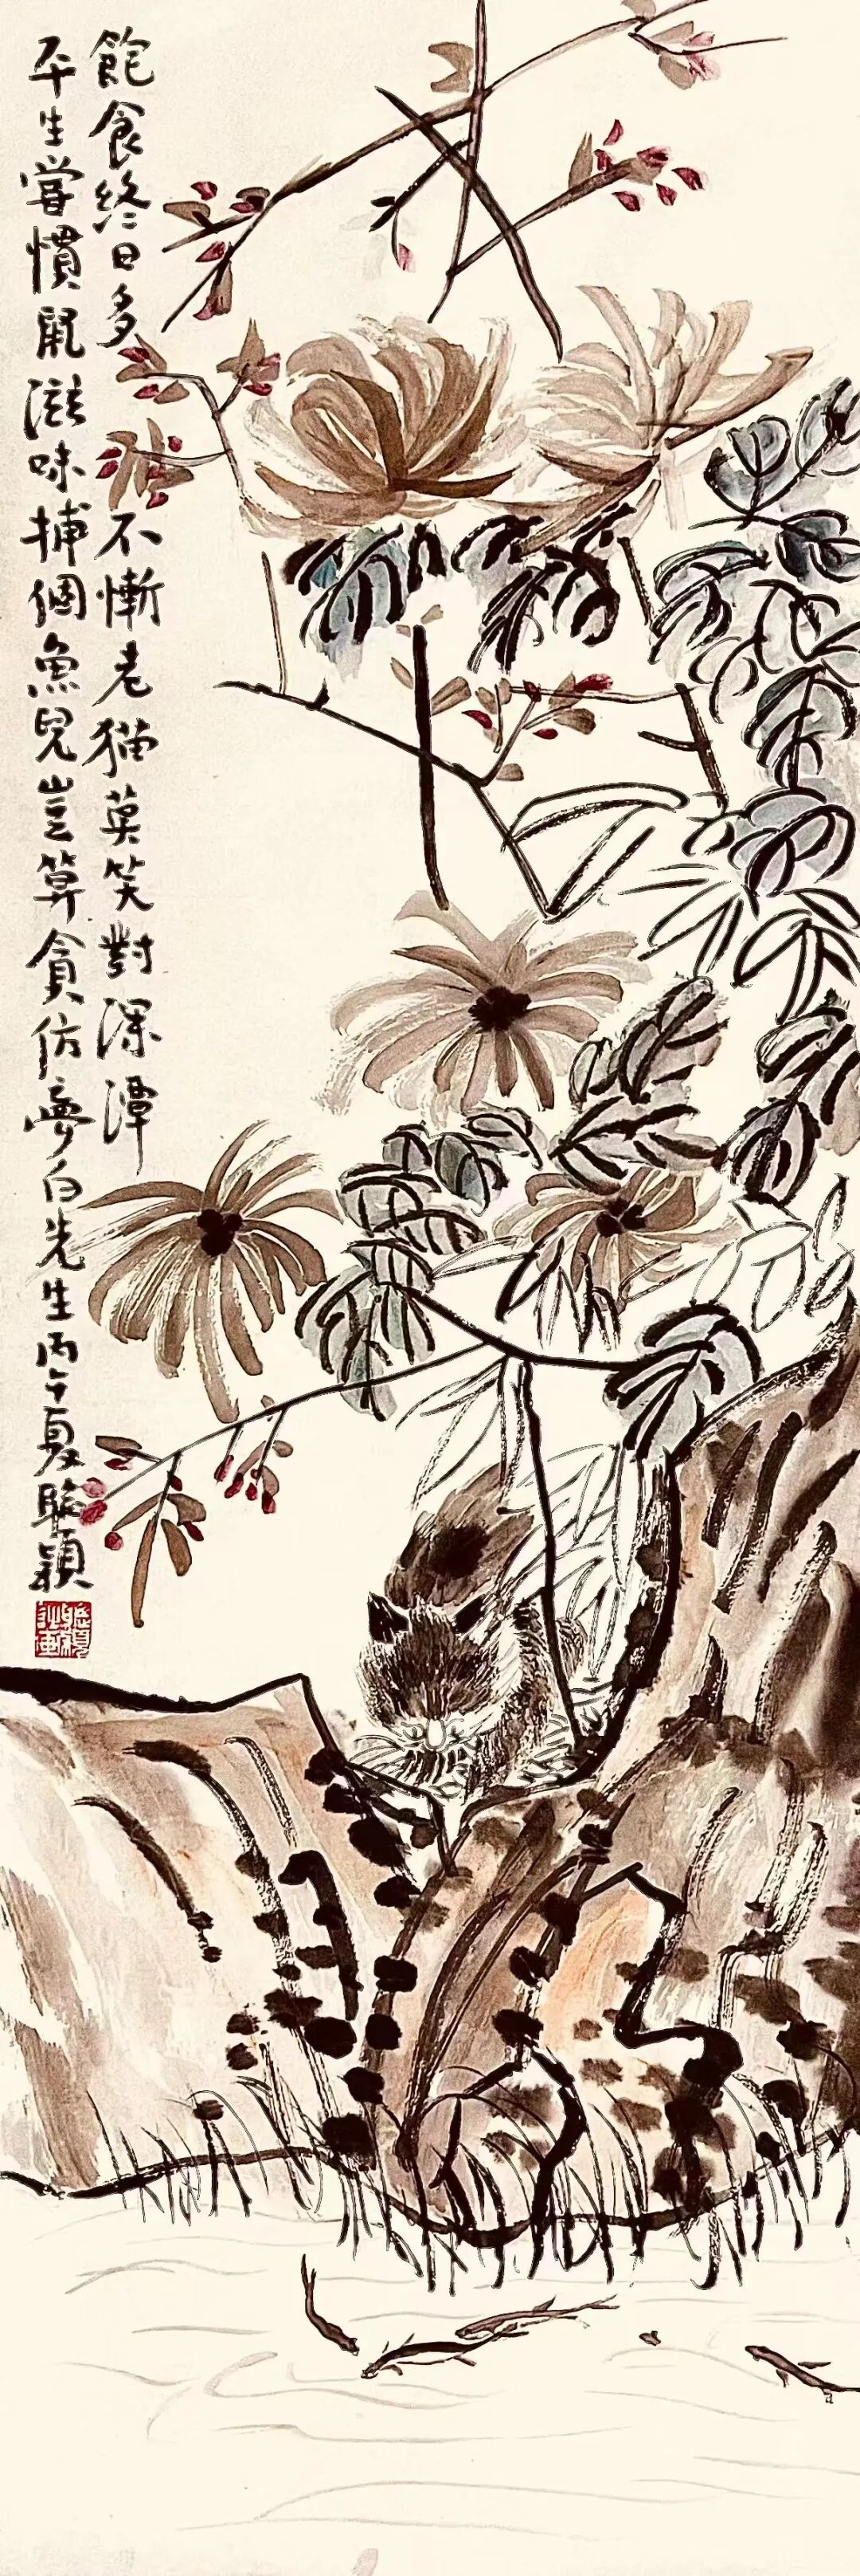 飽食終日多不慚老猫莫笑對深潭
平生嘗慣鼠滋味捕個魚兒豈算貪仿夢白先生丙午夏駿穎